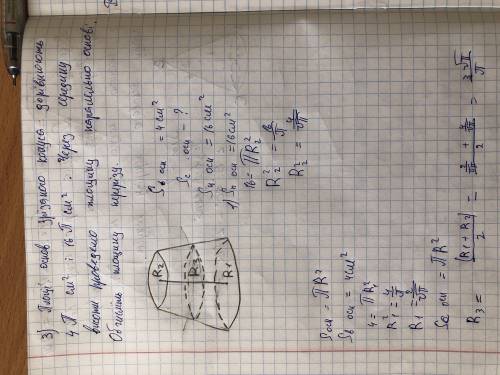 3) Площі основ зрізаного конуса дорівнюють
4 π см² і 16 π см². Через середину
висоти проведено площину паралельно основі.
Обчисліть площину перерізу.
R₂
R₃
R₁
Sв осн = 4 см²
Sс осн - ?
Sн осн = 16 см²
1) Sн осн = 16 см²
16 = πR₂²
R₂² = 16/π
R₂ = 4/√π
Sосн = πR²
Sв осн = 4 см²
4 = πR₁²
R₁² = 4/π
R₁ = 2/√π
Sс осн = πR²
R₃ = (R₁ + R₂)/2 = (2/√π + 4/√π)/2 = 3√π/π